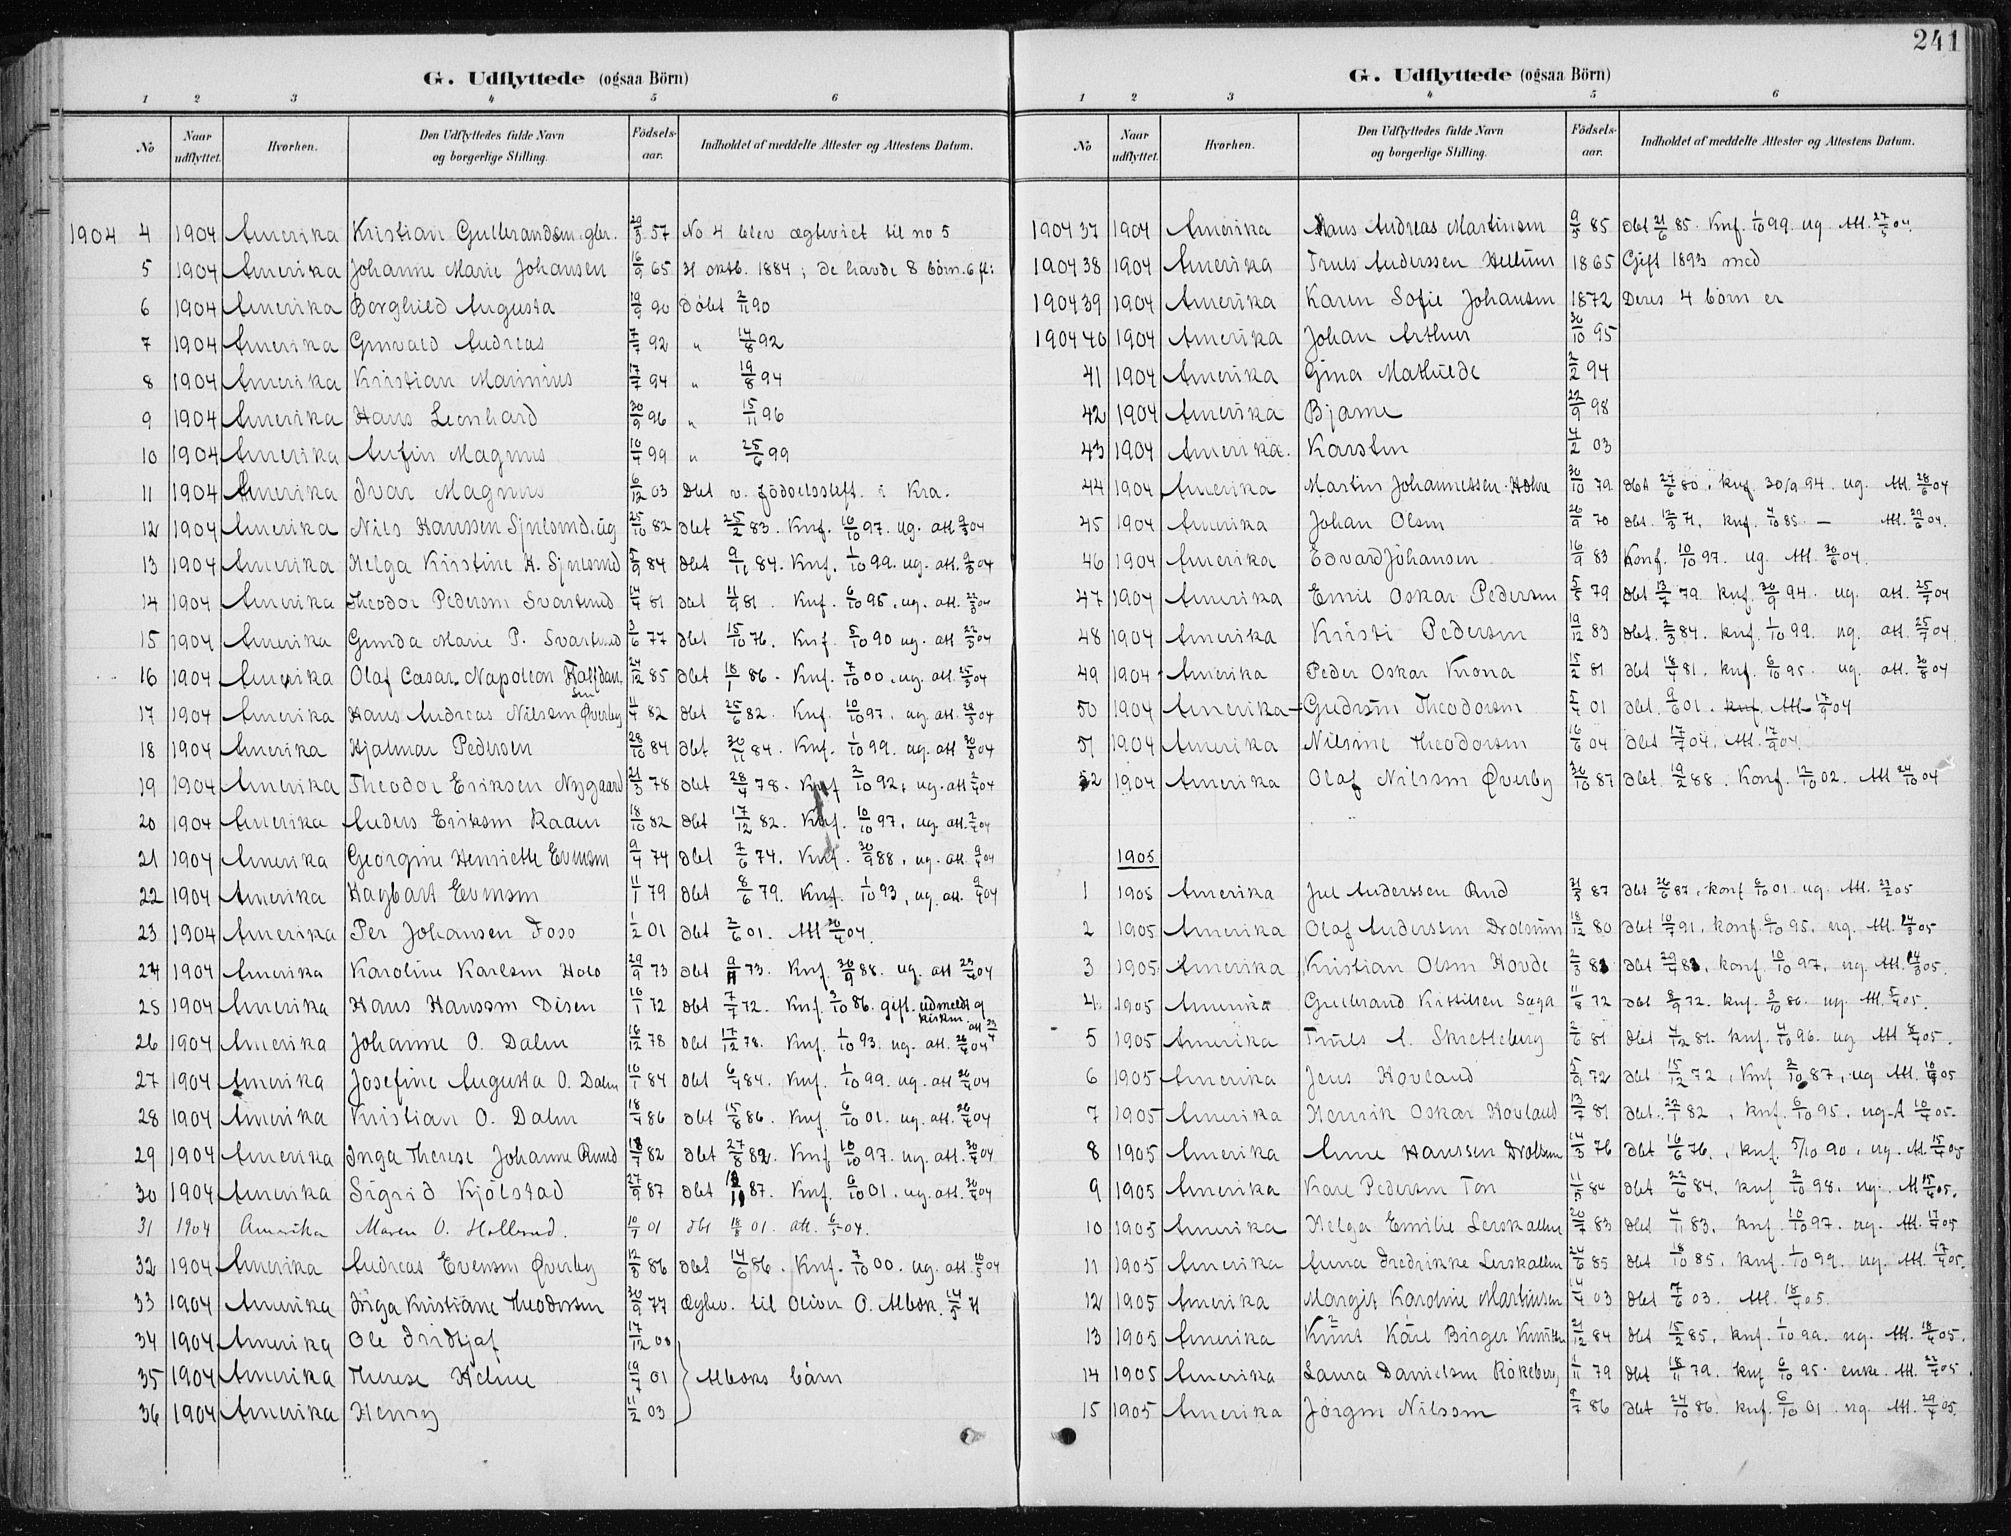 241
G. Udflyttede (ogsaa Börn)
1 2 3 4 5 6
No Naar udflyttet. Hvorhen. Den Udflyttedes fulde Navn og borgerlige Stilling. Födsels-aar. Indholdet af meddelte Attester og Attestens Datum.
1904 4 1904 Amerika Kristian Gulbrandsen gbr. 20/3 57 No 4 blev ægteviet til no 5
5 1904 Amerika Johanne Marie Johansen 16/9 65 oktb. 1884; De havde 8 börn. 6 fl:
6 1904 Amerika Borghild Augusta 19/9 90 döbt 2/11 90
7 1904 Amerika Grnvald Andreas 7/7 92 " 14/8 92
8 1904 Amerika Kristian Marinius 17/7 94 " 19/8 94
9 1904 Amerika Hans Leonhard 30/9 96 " 15/11 96
10 1904 Amerika Anfin Magnus 10/4 99 " 25/6 99
11 1904 Amerika Ivar Magnus 6/12 03 Dbt v. födselsstift. i Kra.
12 1904 Amerika Nils Hanssen Sjulsrud. ug 25/10 82 dbt 25/2 83. Knf. 10/10 97. ug. att. 9/3 04
13 1904 Amerika Helga Kristine H. Sjulsrud 5/9 84 dbt 9/11 84. Knf. 1/10 99. ug. att. 9/3 04
14 1904 Amerika Theodor Pedersen Svartsrud 14/4 81 dbt 11/9 81. Knf. 6/10 95. ug. att. 22/3 04
15 1904 Amerika Gunda Marie P. Svartsrud 3/6 77 dbt 15/10 76. Knf. 5/10 90 ug. att 22/3 04
16 1904 Amerika Olaf Cæsar Napoleon Halfdansen 24/12 85 dbt 18/1 86. Knf. 7/10 00. ug. att. 25/3 04
17 1904 Amerika Hans Andreas Nilsen Øverby 11/4 82 dbt 25/6 82. Knf. 10/10 97. ug. att. 28/3 04
18 1904 Amerika Hjalmar Pedersen 28/10 84 dbt 30/11 84. Knf. 1/10 99. ug. att 30/3 04
19 1904 Amerika Theodor Eriksen Nygaard 21/3 78 dbt 28/4 78. Knf 2/10 92, ug. att 2/4 04
20 1904 Amerika Anders Eriksen Raaen 18/10 82 dbt 17/12 82. Knf. 10/10 97, ug. att. 2/4 04
21 1904 Amerika Georgine Henriette Evensen 9/4 74 dbt 7/6 74. Knf. 30/9 88, ug. att. 9/4 04
22 1904 Amerika Hagbart Evensen 11/1 79 dbt 8/6 79. Knf. 1/10 93, ug. att. 9/4 04
23 1904 Amerika Per Johansen Foss 1/2 01 dbt 2/6 01. Att 20/4 04.
24 1904 Amerika Karoline Karlsen Holo 29/9 73 dbt 9/11 73. Knf. 30/9 88. ug. att 23/4 04
25 1904 Amerika Hans Hanssen Disen 16/1 72 dbt 7/7 72. Knf. 3/10 86. gift. udmeldt af kirken. att 23/4
26 1904 Amerika Johanne O. Dalen 16/12 78 dbt 17/12 78. Knf. 1/10 93. ug. att. 26/4 04
27 1904 Amerika Josefine Augusta O. Dalen 10/1 84 dbt 6/4 84. Knf. 1/10 99. ug. att 26/4 04
28 1904 Amerika Kristian O. Dalen 18/4 86 dbt 15/8 86. Knf. 6/10 01. ug. att. 26/4 04
29 1904 Amerika Inga Therese Johanne Ruud 18/7 82 dbt 27/8 82. Knf 10/10 97. ug. att. 30/4 04
30 1904 Amerika Sigrid Kjölstad 27/9 87 dbt 87. Knf. 6/10 01. ug. att. 30/4 04
31 1904 Amerika Maren O. Hollerud. 10/7 01 dbt 18/8 01. att. 6/5 04.
32 1904 Amerika Andreas Evensen Øverby 12/3 86 dbt 14/6 86. Knf. 7/10 00. ug. att 10/5 04
33 1904 Amerika Inga Kristiane Theodorsen 30/9 77 Ægtev. til Oliver O. Mbok. 14/5
34 1904 Amerika Ole Fridtjof 17/12 00
35 1904 Amerika Therese Helene 19/7 01 Mboks börn
36 1904 Amerika Henry 11/2 03
G. Udflyttede (ogsaa Börn)
1 2 3 4 5 6
No Naar udflyttet. Hvorhen. Den Udflyttedes fulde Navn og borgerlige Stilling. Födsels-aar. Indholdet af meddelte Attester og Attestens Datum.
1904 37 1904 Amerika Hans Andreas Martinsen 9/5 85 dbt 21/6 85. Knf. 1/10 99. ug Att. 27/5 04.
1904 38 1904 Amerika Truls Anderssen Hellum 1865 Gift 1893 med
1904 39 1904 Amerika Karen Sofie Johansen 1872 Deres 4 börn er
1904 40 1904 Amerika Johan Arthur 30/10 95
41 1904 Amerika Gina Mathilde 2/2 94
42 1904 Amerika Bjarne 22/9 98
43 1904 Amerika. Karsten 4/2 03
44 1904 Amerika Martin Johannessen 30/10 79 dbt 27/6 80. knf. 30/9 94. ug. Att. 28/6 04
45 1904 Amerika Johan Olsen 26/9 70 dbt. 12/3 71, knf. 4/10 85. — Att. 29/6 04.
46 1904 Amerika Edvard Johansen 16/9 83 Konf. 10/10 97. ug. Att. 30/6 04.
47 1904 Amerika Emil Oskar Pedersen 5/5 79 dbt 13/7 79. knf. 30/9 94. ug. att. 25/7 04
48 1904 Amerika Kristi Pedersen 19/12 83 dbt. 2/3 84. knf. 1/10 99. ug. att. 25/7 04.
49 1904 Amerika Peder Oskar Krona 15/2 81 dbt 18/4 81. knf. 6/10 95. ug. att. 30/8 04
50 1904 Amerika Gudrun Theodorsen 5/4 01 dbt. 9/6 01. knf. Att 17/9 04
51 1904 Amerika Nilsine Theodorsen 16/6 04 dbt 17/7 04. Att. 17/9 04.
52 1904 Amerika Olaf Nilssen Øverby 30/10 87 dbt. 19/2 88. Konf. 12/10 02. Att 24/10 04
1905
1 1905 Amerika Jul Anderssen Rud 21/3 87 dbt 26/6 87, konf 6/10 01. ug. Att. 23/2 05
2 1905 Amerika Olaf Anderssen Drolsum 18/12 80 dbt 10/7 91, konf. 6/10 95, ug. Att. 14/3 05
3 1905 Amerika Kristian Olsen Hovde 2/3 83 dbt 29/4 83, konf. 10/10 97, ug. Att. 14/3 05.
4 1905 Amerika Gulbrand Kittilsen Saga 11/8 72 dbt 8/9 72. knf. 3/10 86. ug. Att. 5/4 05.
5 1905 Amerika Truls A. Skretteberg 2/6 81 dbt 4/12 81. knf. 4/10 96. ug Att 8/4 05.
6 1905 Amerika Jens Hovland 5/9 72 dbt 15/12 72, knf 2/10 87, ug Att. 10/4 05
7 1905 Amerika Henrik Oskar Hovland 13/7 81 dbt. 22/1 82, knf. 6/10 95. ug. A 10/4 05.
8 1905 Amerika Anne Hanssen Drolsum 14/3 76 dbt 16/6 76, knf. 5/10 90, ug. Att. 15/4 05
9 1905 Amerika Kare Pedersen Ton 11/5 84 dbt 22/6 84. knf 2/10 98. ug. A 15/4 05.
10 1905 Amerika Helga Emilie Lerskallen 20/7 83 dbt 4/11 83. knf. 10/10 97. ug. Att. 17/4 05
11 1905 Amerika Anna Fredrikke Lerskallen 24/6 85 dbt 18/10 85. knf. 1/10 99. ug. Att. 17/4 05.
12 1905 Amerika Margit Karoline Martinsen 14/4 03 dbt 7/6 03. Att. 18/4 05.
13 1905 Amerika Knut Karl Birger Knutsen 21/12 84 dbt 15/2 85. knf. 1/10 99. ug. Att. 18/4 05.
14 1905 Amerika Laura Danielsen Rökeberg 1/11 79 dbt 18/11 79. knf 6/10 95. enke. Att. 22/4 05.
15 1905 Amerika Jörgen Nilssen 9/7 86 dbt 24/10 86. knf. 6/10 01. ug. Att. 29/4 05.